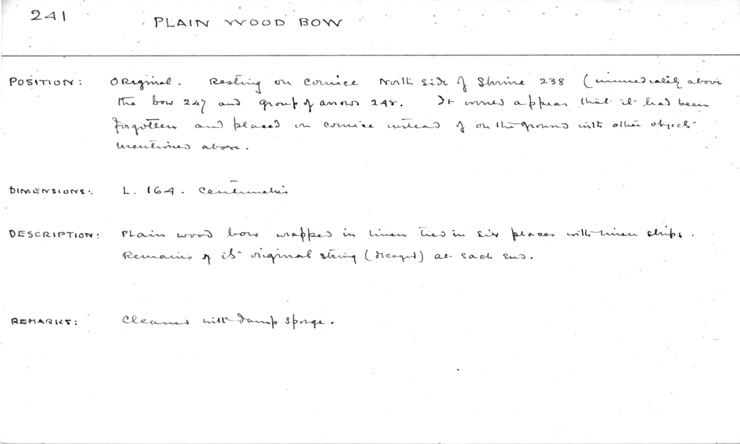 241
PLAIN WOOD BOW
POSITION: Original. Resting on cornice North side of Shrine 238 (immediately above
the bow 247 and group of arrows 248. It would appear that it had been
forgotten and placed on cornice instead of on the ground with other objects
mentioned above.
DIMENSIONS: L. 164. Centimetres
DESCRIPTION: Plain wood bow wrapped in linen tied in six places with linen strips.
Remains of its original string (decayed) at each end.
REMARKS: Cleaned with damp sponge.